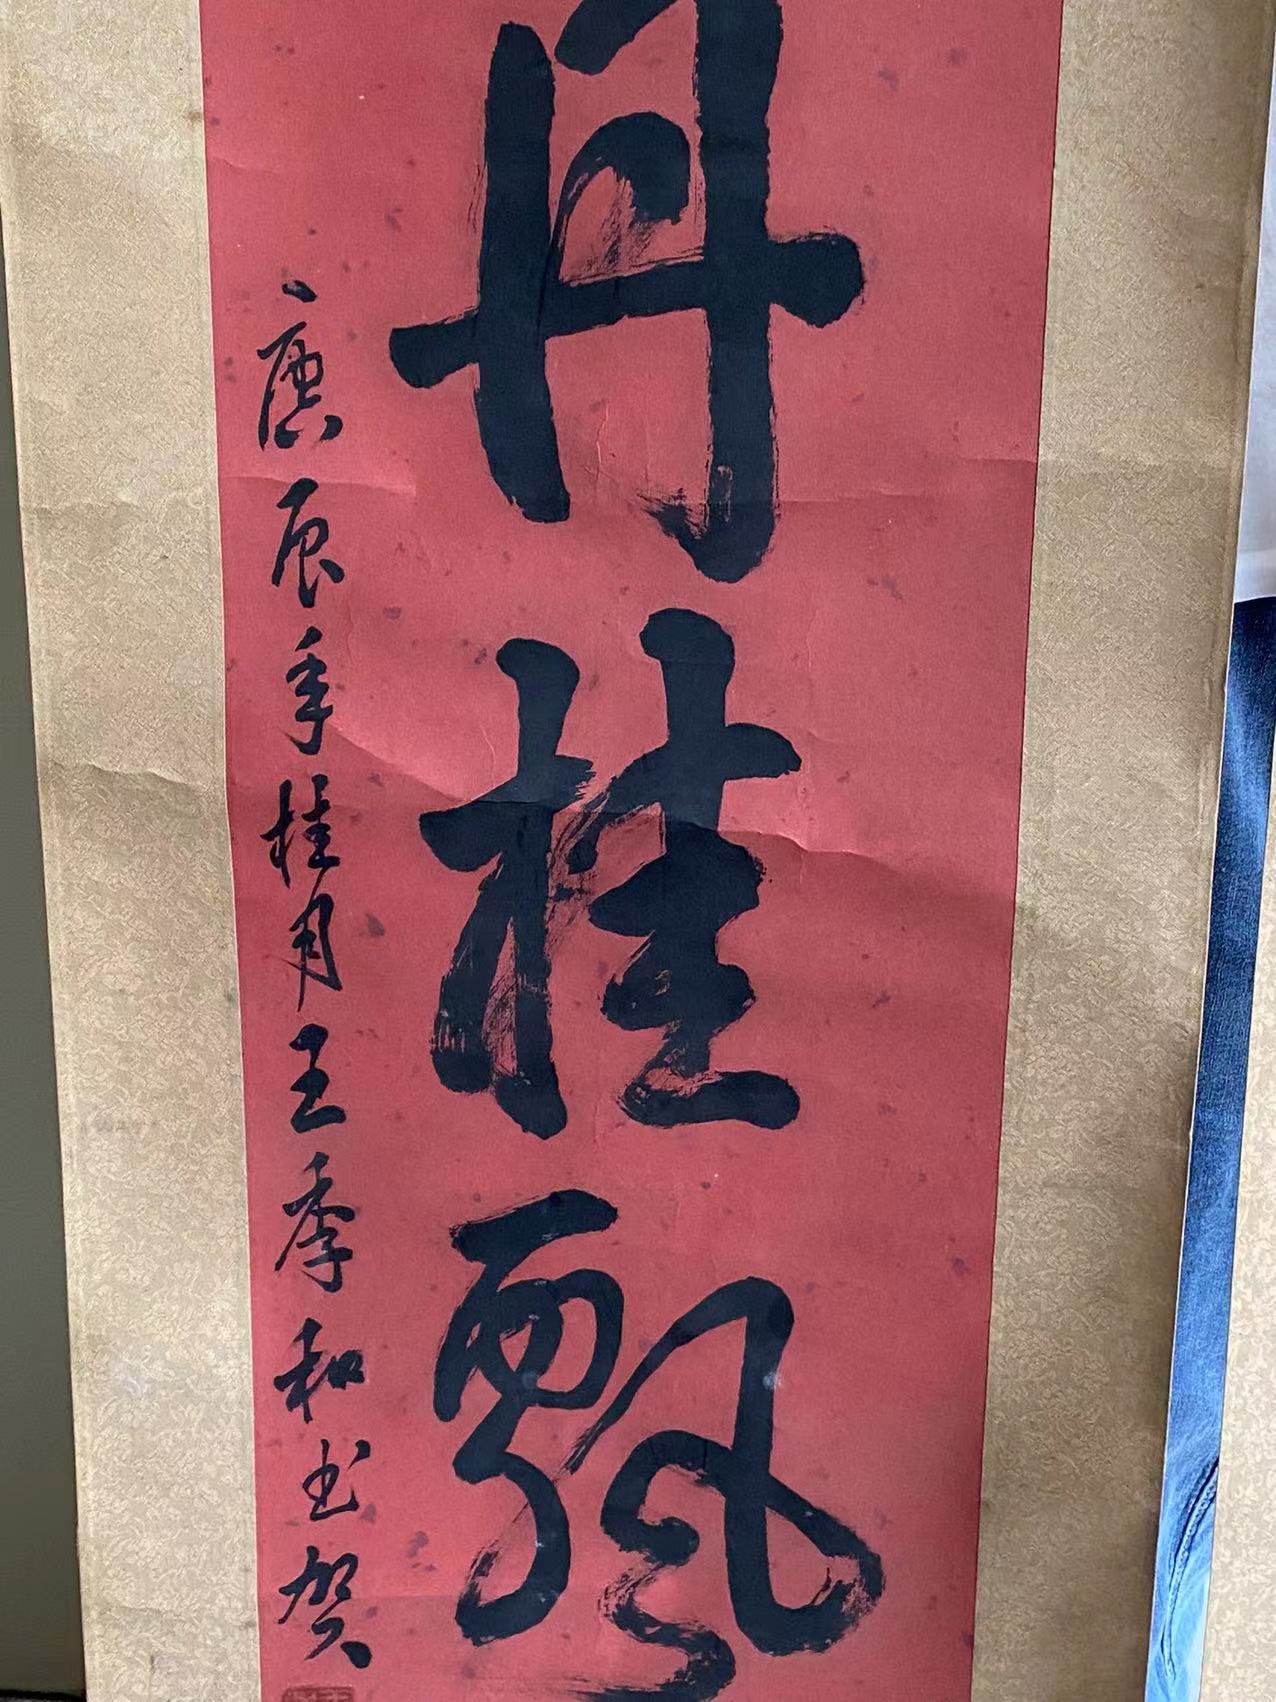 丹桂飘
庚辰年桂月王季和书贺